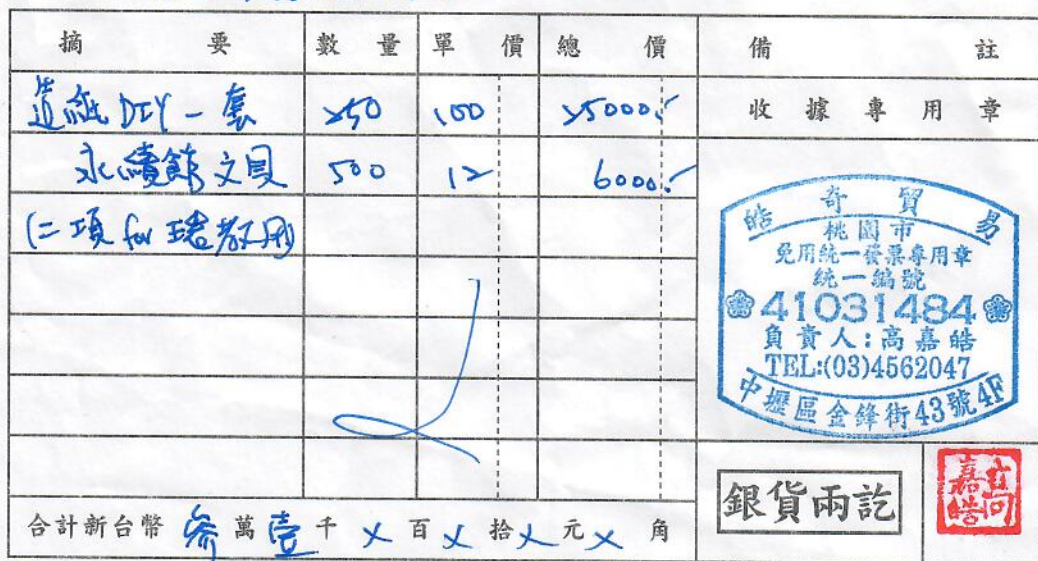 摘要 數量 單價 總價 備註
造紙DIY一套 250 100 25000.-
收據專用章
永續館文具 500 12 6000.-
(二項 for 環教用)
皓奇貿易
桃園市
免用統一發票專用章
統一編號
41031484
負責人:高嘉皓
TEL:(03)4562047
中壢區金鋒街43號4F
銀貨兩訖
高嘉皓
合計新台幣 參萬壹千 X 百 X 拾 X 元 X 角